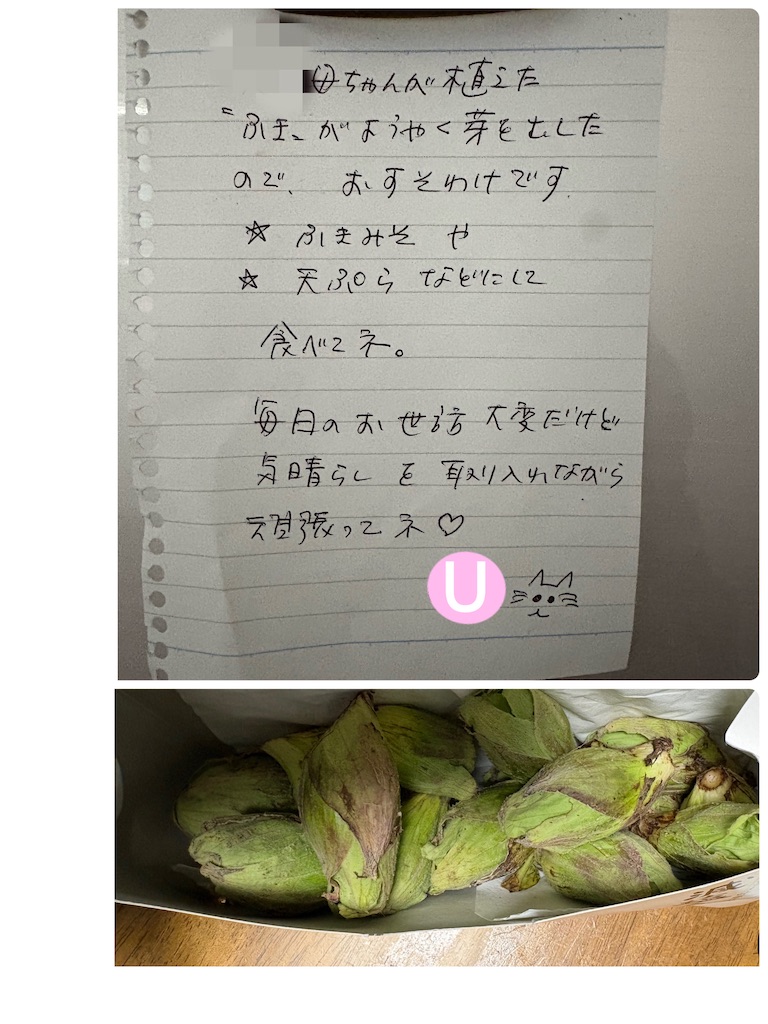 母ちゃんが植えた
"ふき„がようやく芽を出した
ので、おすそわけです。
☆ ふきみそ や
☆ 天ぷら などにして
食べてネ。
毎日のお世話大変だけど
気晴らしを取り入れながら
頑張ってネ♡
U